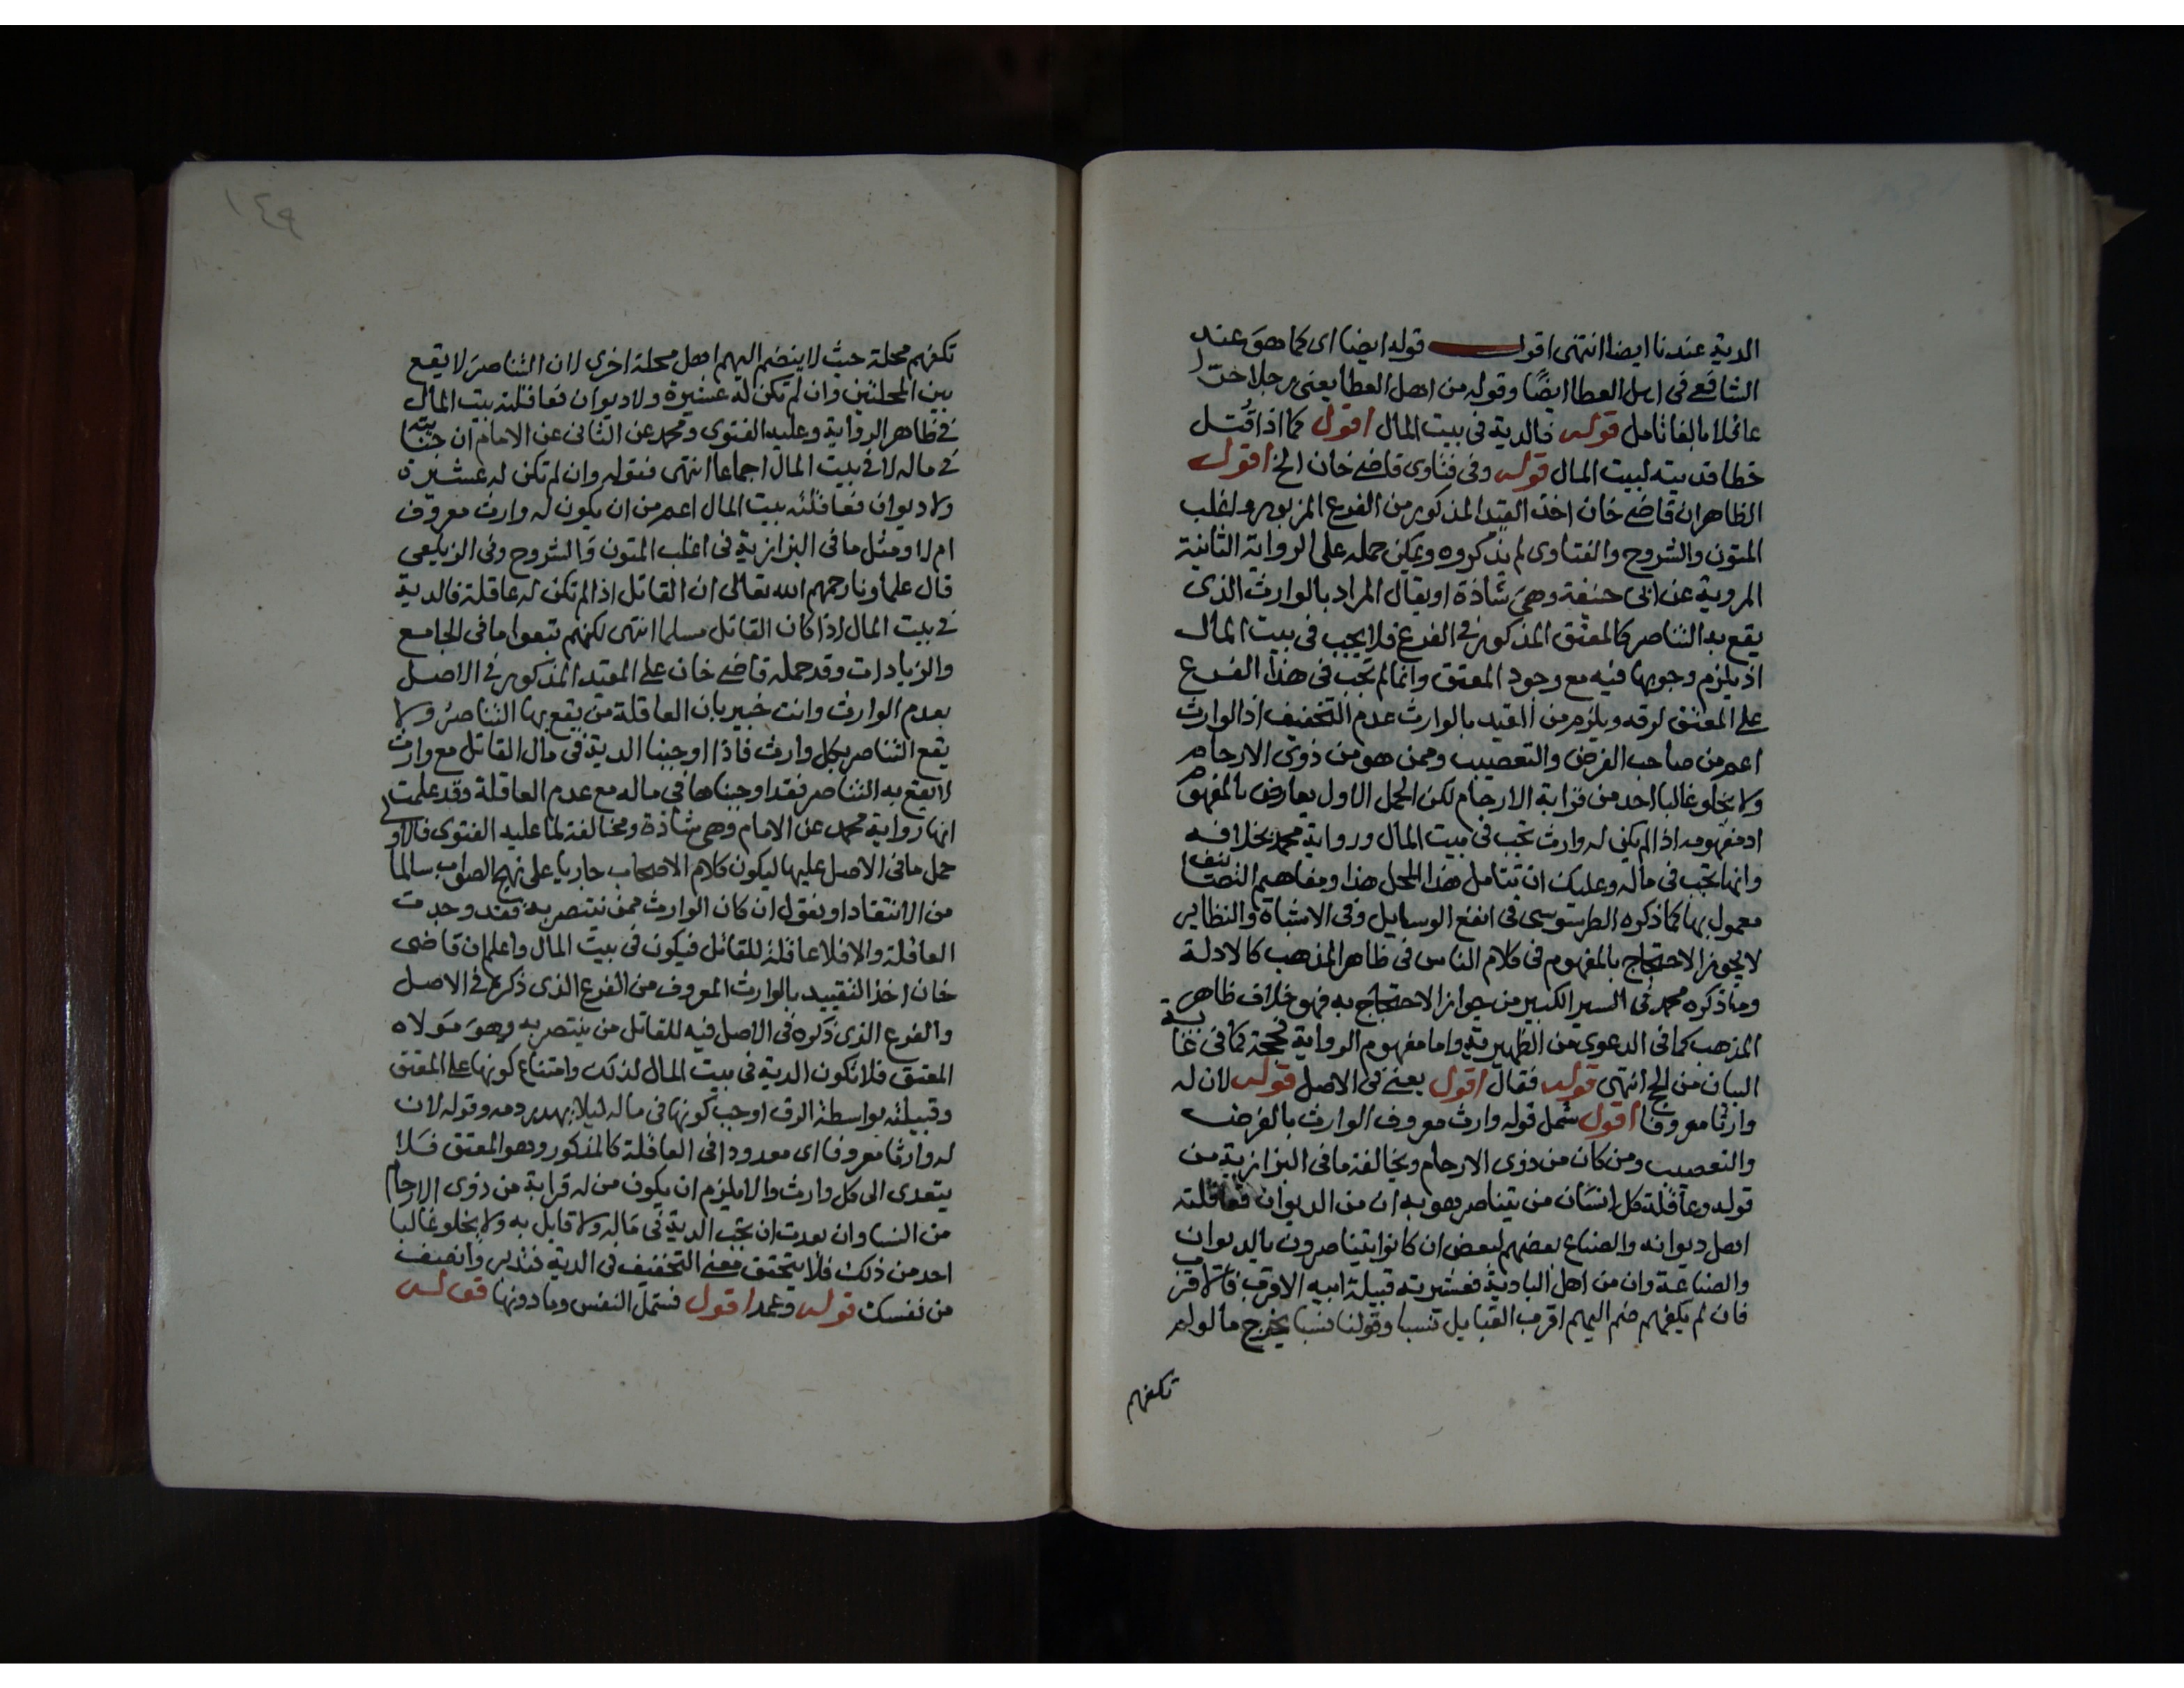 الدية عندنا ايضا انتهى اقول قوله ايضا اى كما هو عند
الشافعى فى اهل العطا ايضًا وقوله من اهل العطا يعنى رجلا حرّا
عاقلا بالغا تامل قوله فالدية فى بيت المال اقول كما اذا قُتل
خطا فديته لبيت المال قوله وفى فتاوى قاضى خان الخ اقول
الظاهر ان قاضى خان اخذ القيد المذكور من الفرع المزبور واغلب
المتون والشروح والفتاوى لم يذكروه ويمكن حمله على الرواية الثانية
المروية عن ابى حنيفة وهى شاذة او يقال المراد بالوارث الذى
يقع به التناصر كالمعتق المذكور فى الفرع فلا يجب فى بيت المال
اذ يلزم وجوبها فيه مع وجود المعتق وانما لم تجب فى هذا الفرع
على المعتق لرقه ويلزم من القيد بالوارث عدم التخفيف اذ الوارث
اعم من صاحب الفرض والتعصيب وممن هو من ذوى الارحام
ولا يخلو غالبا احد من قرابة الارحام لكن الحمل الاول يعارض بالمفهوم
اد مفهومه اذا لم يكن له وارث تجب فى بيت المال ورواية محمد بخلافه
وانها تجب فى ماله وعليك ان تتامل هذا المحل هذا ومفاهيم التصانيف
معمول بها كما ذكره الطرسوسى فى انفع الوسايل وفى الاشباه والنظاير
لا يجوز الاحتجاج بالمفهوم فى كلام الناس فى ظاهر المذهب كالادلة
وما ذكره محمد فى السير الكبير من جواز الاحتجاج به فهو خلاف ظاهر
المذهب كما فى الدعوى من الظهيرية واما مفهوم الرواية فحجة كما فى غاية
البيان من الحج انتهى قوله فقال اقول يعنى فى الاصل قوله لان له
وارثا معروفا اقول شمل قوله وارث معروف الوارث بالفرض
والتعصيب ومن كان من ذوى الارحام ويخالفه ما فى البزازية من
قوله وعاقلة كل انسان من يتناصر هو به ان من الديوان فعاقلته
اهل ديوانه والصناع بعضهم لبعض ان كانوا يتناصرون بالديوان
والصناعة وان من اهل البادية فعشيرته قبيلة ابيه الاقرب فالاقرب
فان لم يكفهم ضم اليهم اقرب القبايل نسبا وقولنا نسبا يخرج ما لو لم
تكفهم
١٤٩
تكفهم محلة حيث لا ينضم اليهم اهل محلة اخرى لان التناصر لا يقع
بين المحلتين وان لم تكن له عشيرة ولا ديوان فعاقلته بيت المال
فى ظاهر الرواية وعليه الفتوى ومحمد عن الثانى عن الامام ان جنايته
فى ماله لا فى بيت المال اجماعا انتهى فقوله وان لم تكن له عشيرة
ولا ديوان فعاقلته بيت المال اعم من ان يكون له وارث معروف
ام لا ومثل ما فى البزازية فى اغلب المتون والشروح وفى الزيلعى
قال علماونا رحمهم الله تعالى ان القاتل اذا لم تكن له عاقلة فالدية
فى بيت المال اذا كان القاتل مسلما انتهى لكنهم تبعوا ما فى الجامع
والزيادات وقد حمله قاضى خان على المقيد المذكور فى الاصل
بعدم الوارث وانت خبير بان العاقلة من يقع بها التناصر ولا
يقع التناصر بكل وارث فاذا اوجبنا الدية فى مال القاتل مع وارث
لا يقع به التناصر فقد اوجبناها فى ماله مع عدم العاقلة وقد علمت
انها رواية محمد عن الامام وهى شاذة ومخالفة لما عليه الفتوى فالاولى
حمل ما فى الاصل عليها ليكون كلام الاصحاب جاريا على نهج الصواب سالما
من الانتقاد او نقول ان كان الوارث ممن ينتصر به فقد وجدت
العاقلة والا فلا عاقلة للقاتل فيكون فى بيت المال واعلم ان قاضى
خان اخذ التقييد بالوارث المعروف من الفرع الذى ذكره فى الاصل
والفرع الذى ذكره فى الاصل فيه للقاتل من ينتصر به وهو مولاه
المعتق فلا تكون الدية فى بيت المال لذلك وامتناع كونها على المعتق
وقبيلته بواسطة الرق اوجب كونها فى ماله ليلا يهدر دمه وقوله لان
له وارثا معروفا اى معدودا فى العاقلة كالمذكور وهو المعتق فلا
يتعدى الى كل وارث والا يلزم ان يكون من له قرابة من ذوى الارحام
من النسا وان بعدت ان تجب الدية فى ماله ولا قايل به ولا يخلو غالبا
احد من ذلك فلا يتحقق معنى التخفيف فى الدية فتدبر وانصف
من نفسك قوله وعمد اقول فشمل النفس وما دونها قوله